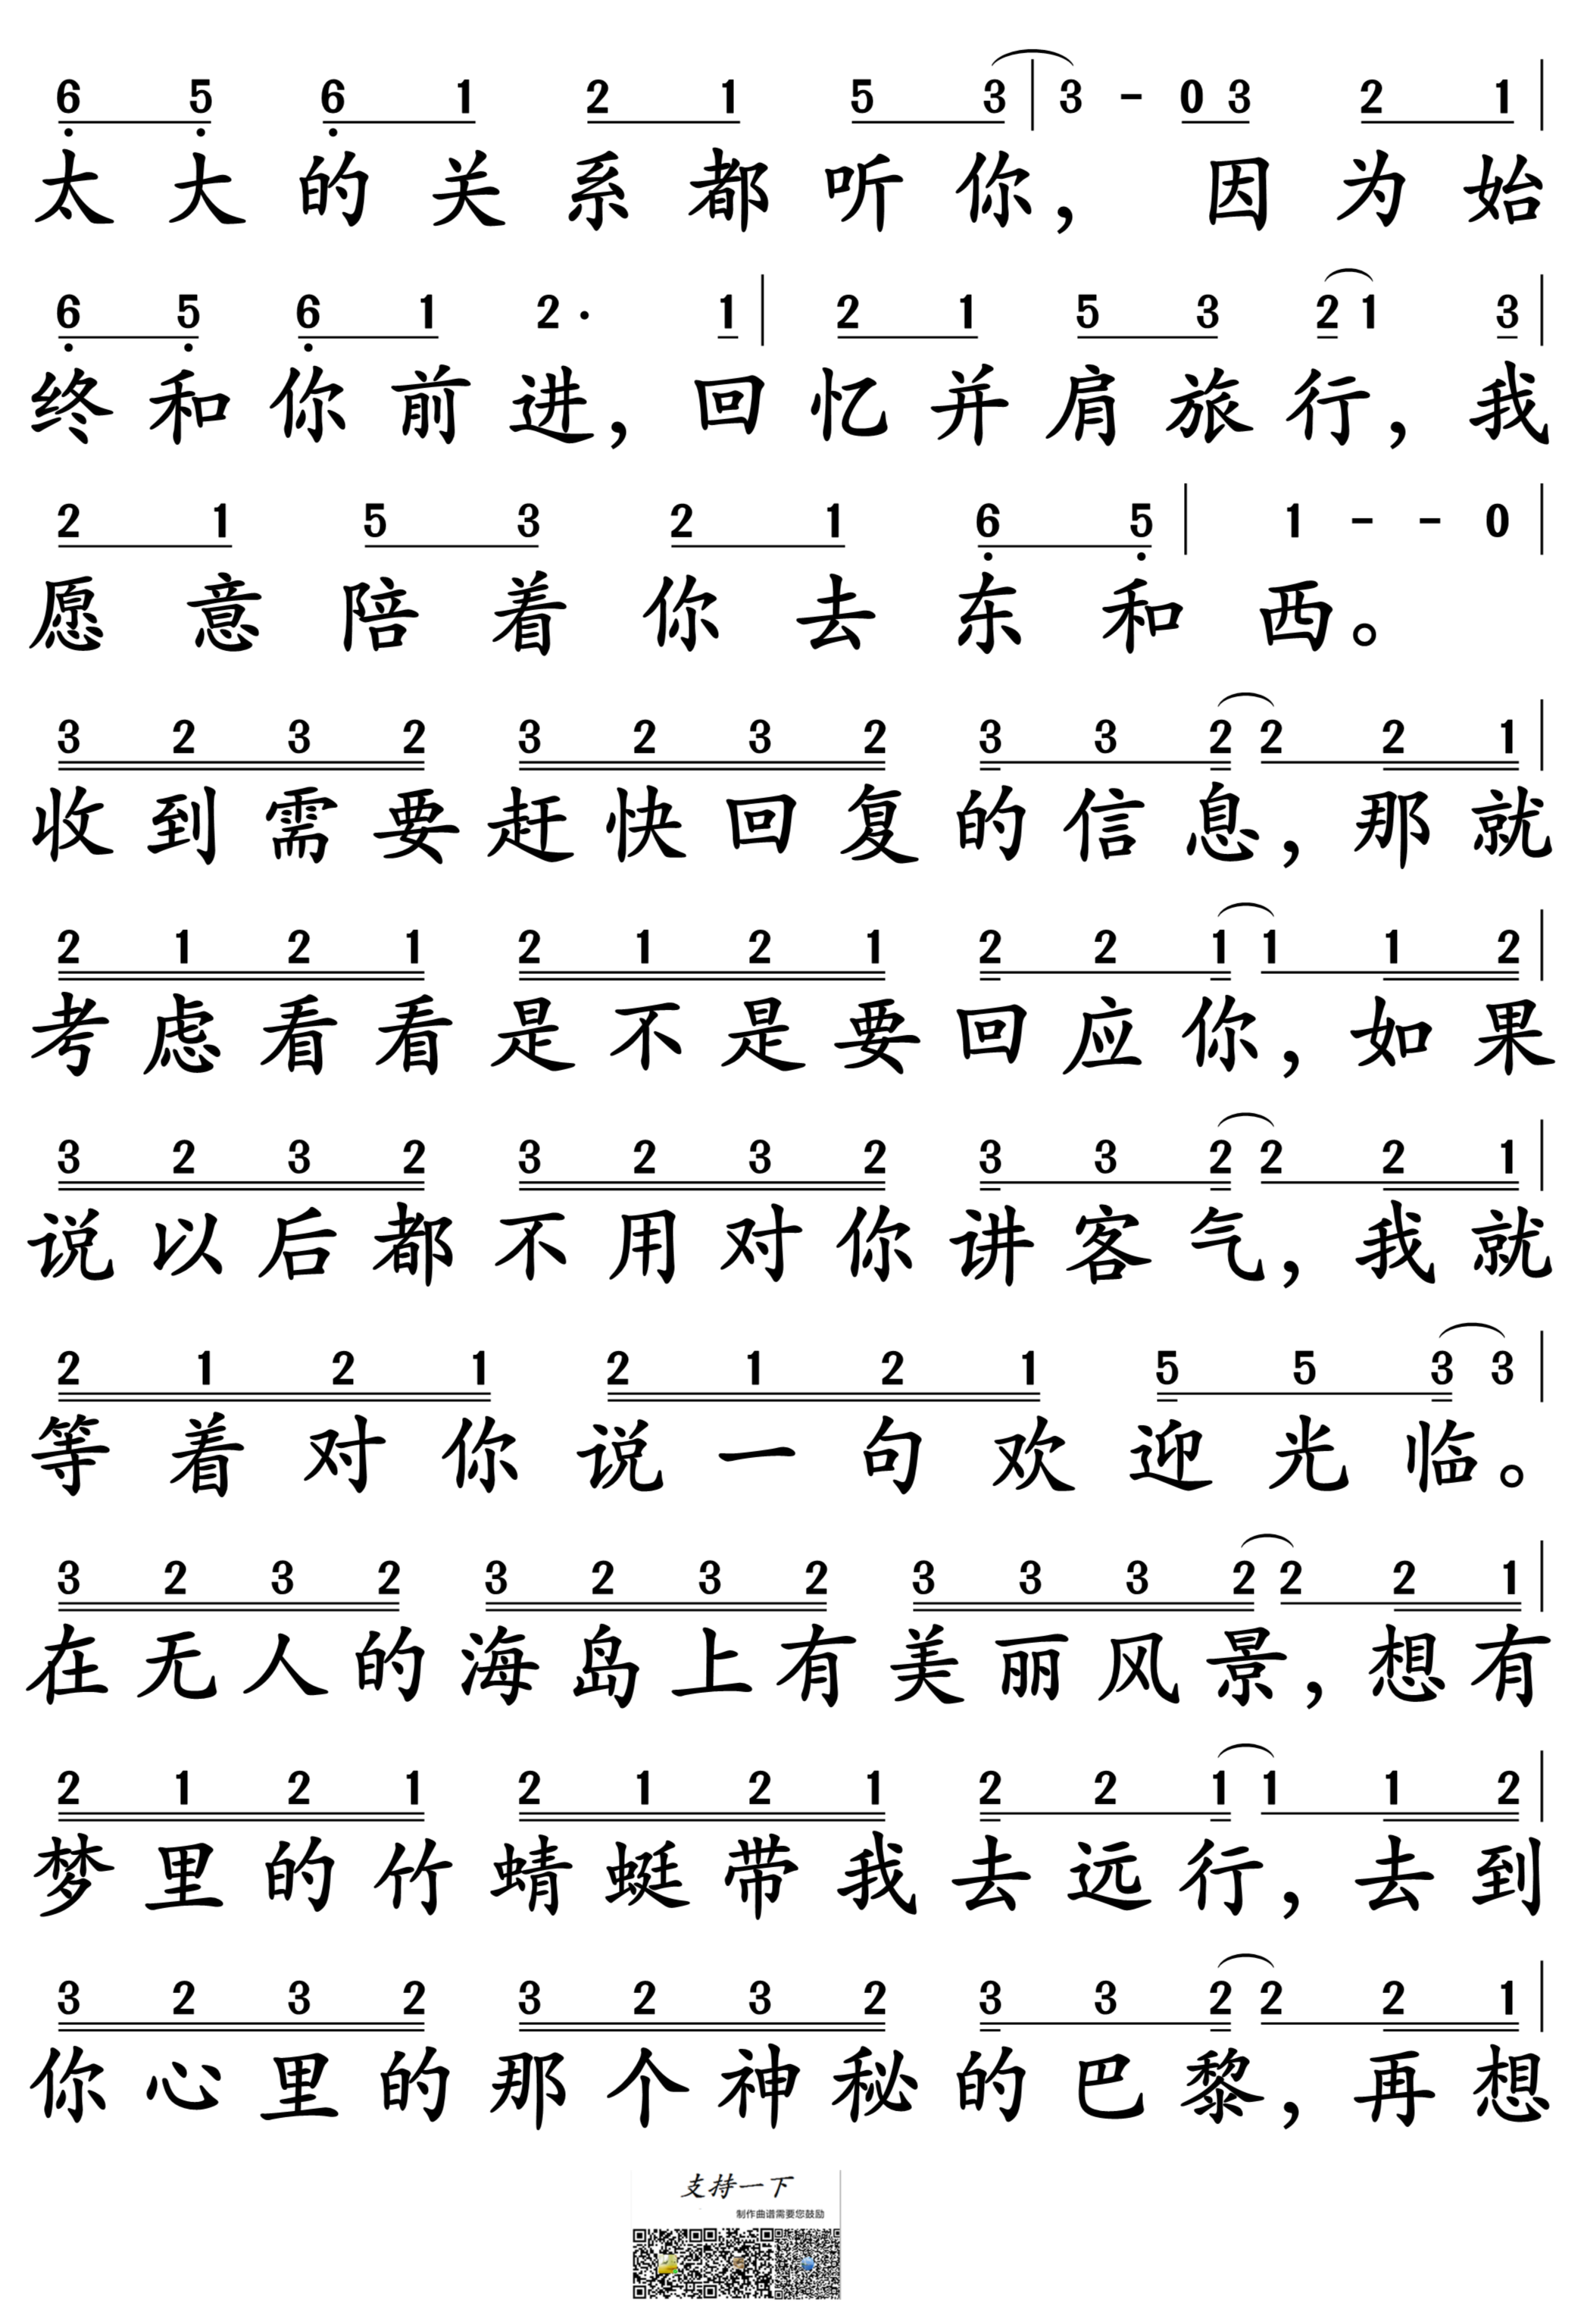 6 5 6 1 2 1 5 3 | 3 - 0 3 2 1 |
太大的关系都听你，因为始
6 5 6 1 2· 1 | 2 1 5 3 2 1 3 |
终和你前进，回忆并肩旅行，我
2 1 5 3 2 1 6 5 | 1 - - 0 |
愿意陪着你去东和西。
3 2 3 2 3 2 3 2 3 3 2 2 2 1 |
收到需要赶快回复的信息，那就
2 1 2 1 2 1 2 1 2 2 1 1 1 2 |
考虑看看是不是要回应你，如果
3 2 3 2 3 2 3 2 3 3 2 2 2 1 |
说以后都不用对你讲客气，我就
2 1 2 1 2 1 2 1 5 5 3 3 |
等着对你说一句欢迎光临。
3 2 3 2 3 2 3 2 3 3 3 2 2 2 1 |
在无人的海岛上有美丽风景，想有
2 1 2 1 2 1 2 1 2 2 1 1 1 2 |
梦里的竹蜻蜓带我去远行，去到
3 2 3 2 3 2 3 2 3 3 2 2 2 1 |
你心里的那个神秘的巴黎，再想
支持一下
制作曲谱需要您鼓励